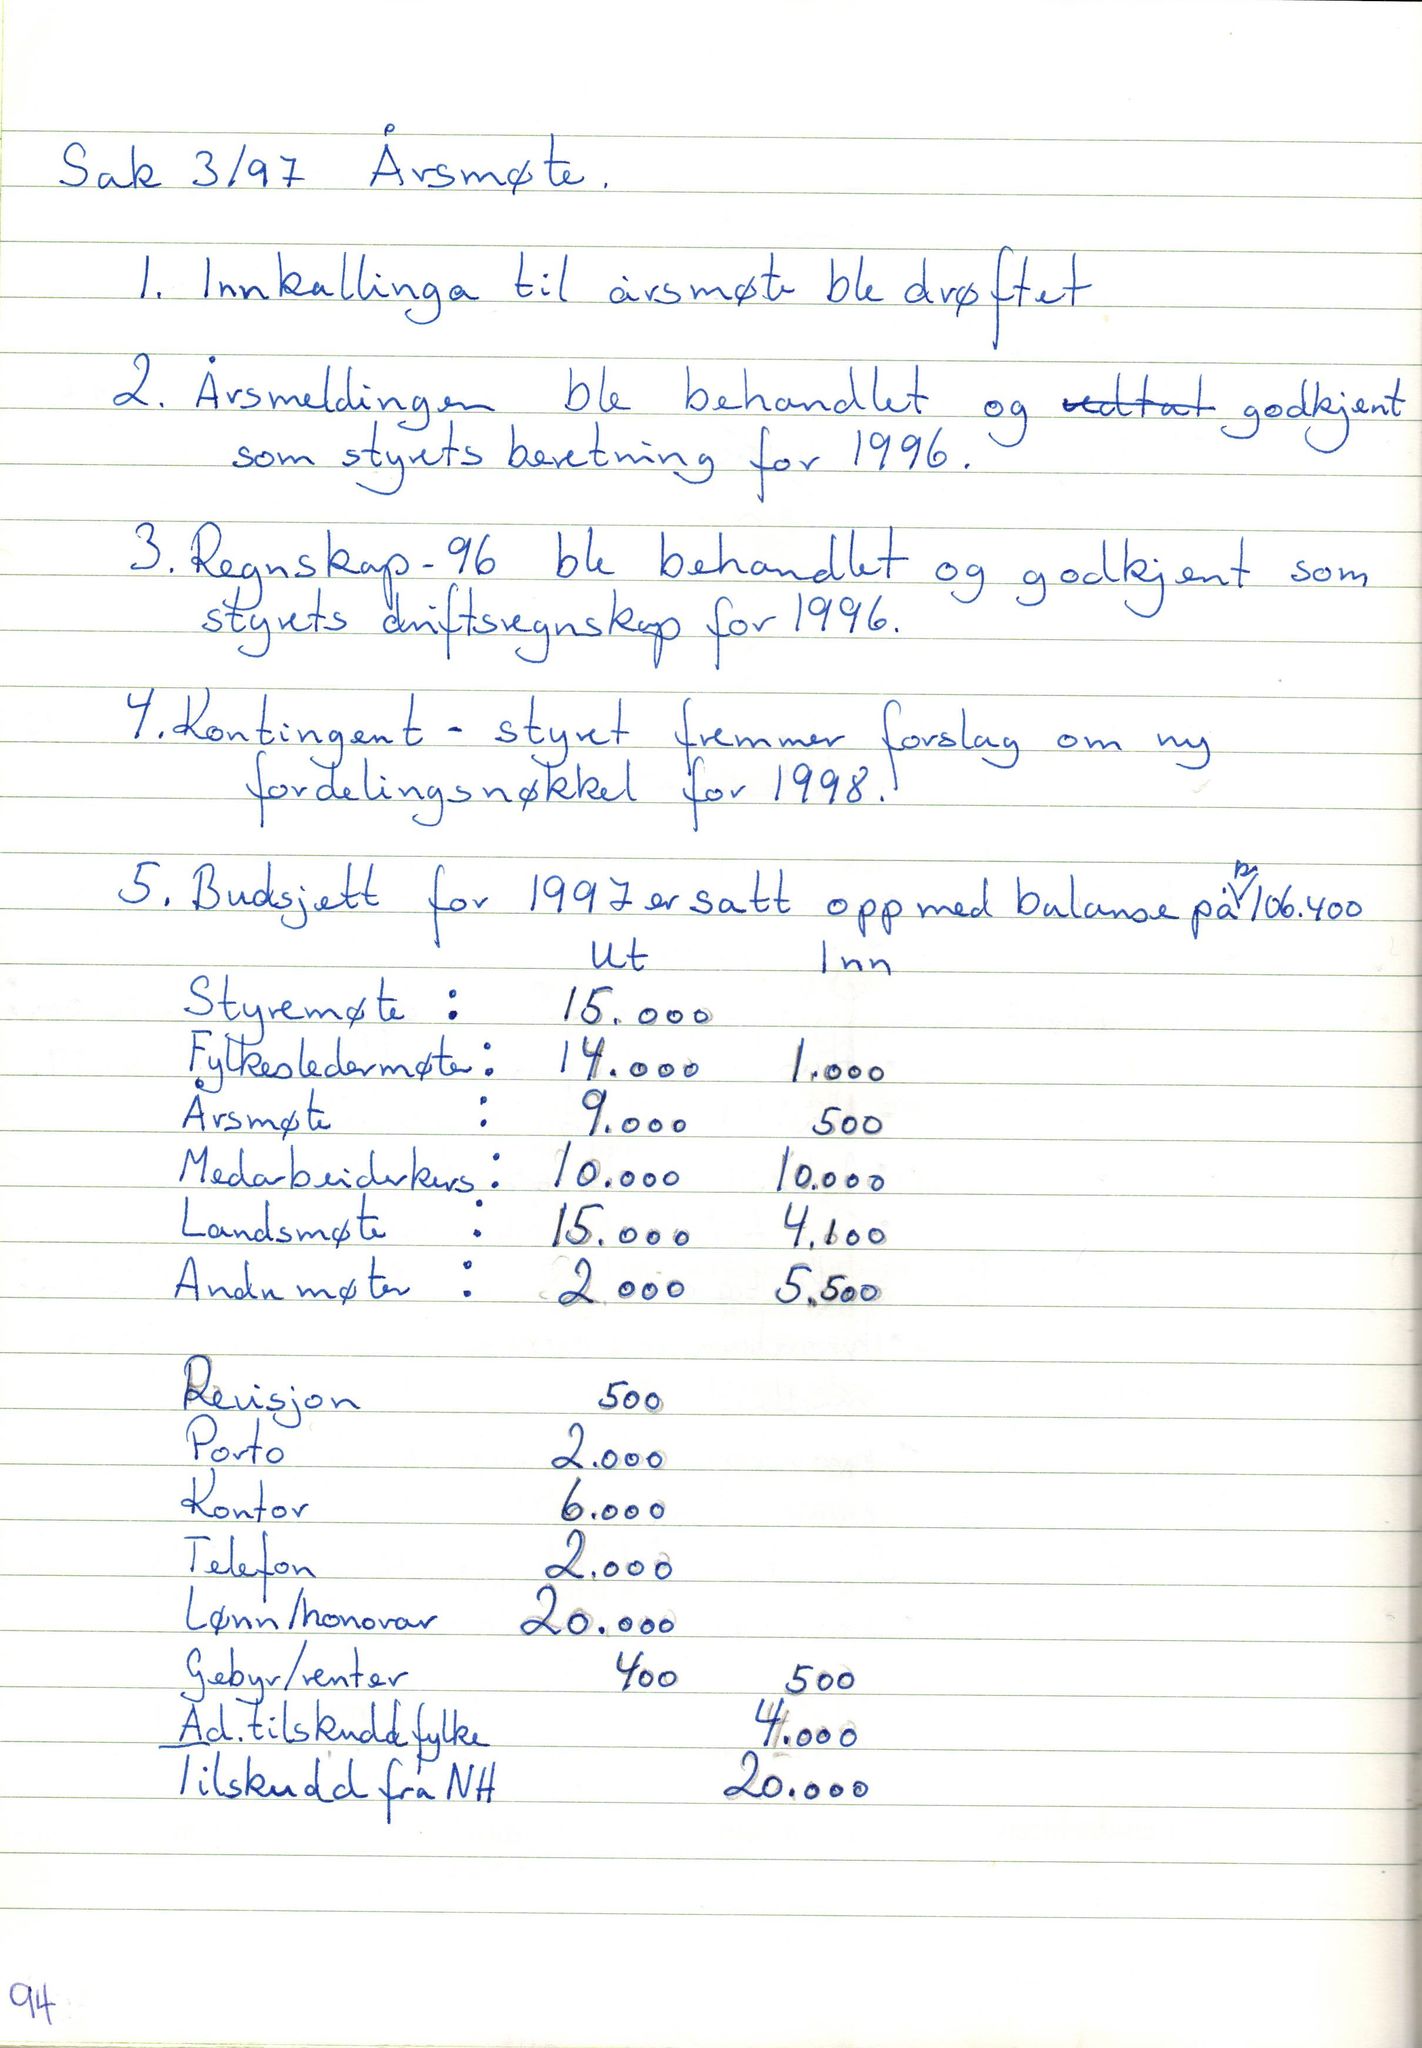 Sak 3/97 Årsmøte.
1. Innkallinga til årsmøte ble drøftet
2. Årsmeldingen ble behandlet og vedtat godkjent
som styrets beretning for 1996.
3. Regnskap-96 ble behandlet og godkjent som
styrets driftsregnskap for 1996.
4. Kontingent - styret fremmer forslag om ny
fordelingsnøkkel for 1998.
5. Budsjett for 1997 er satt opp med balanse på 106.400
Ut Inn
Styremøte : 15.000
Fylkesledermøte : 14.000 1.000
Årsmøte : 9.000 500
Medarbeiderkurs : 10.000 10.000
Landsmøte : 15.000 4.100
Andre møter : 2 000 5.500
Revisjon 500
Porto 2.000
Kontor 6.000
Telefon 2.000
Lønn/honorar 20.000
Gebyr/renter 400 500
Ad. tilskudd fylke 4.000
Tilskudd fra NH 20.000
94